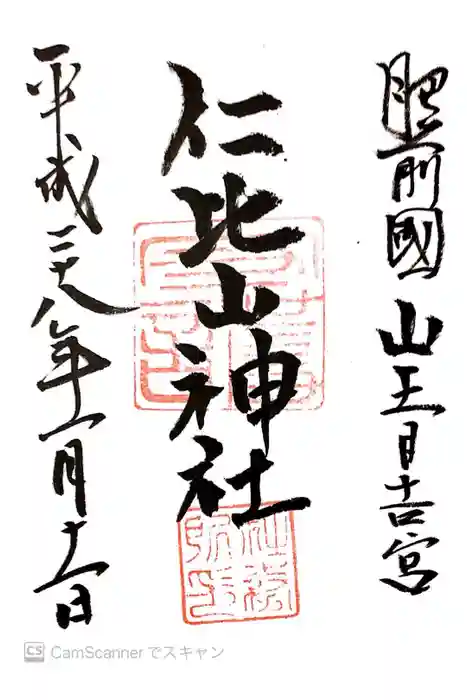 肥前國 山王日吉宮
仁比山神社
平成二十八年一月十一日
社務
所印
CS CamScanner でスキャン